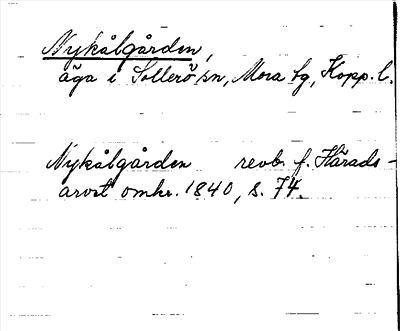 Nykålgården,
äga i Sollerö sn, Mora tg, Kopp. l.
Nykålgården revb. f. Härads-
arvst omkr. 1840, s. 74.